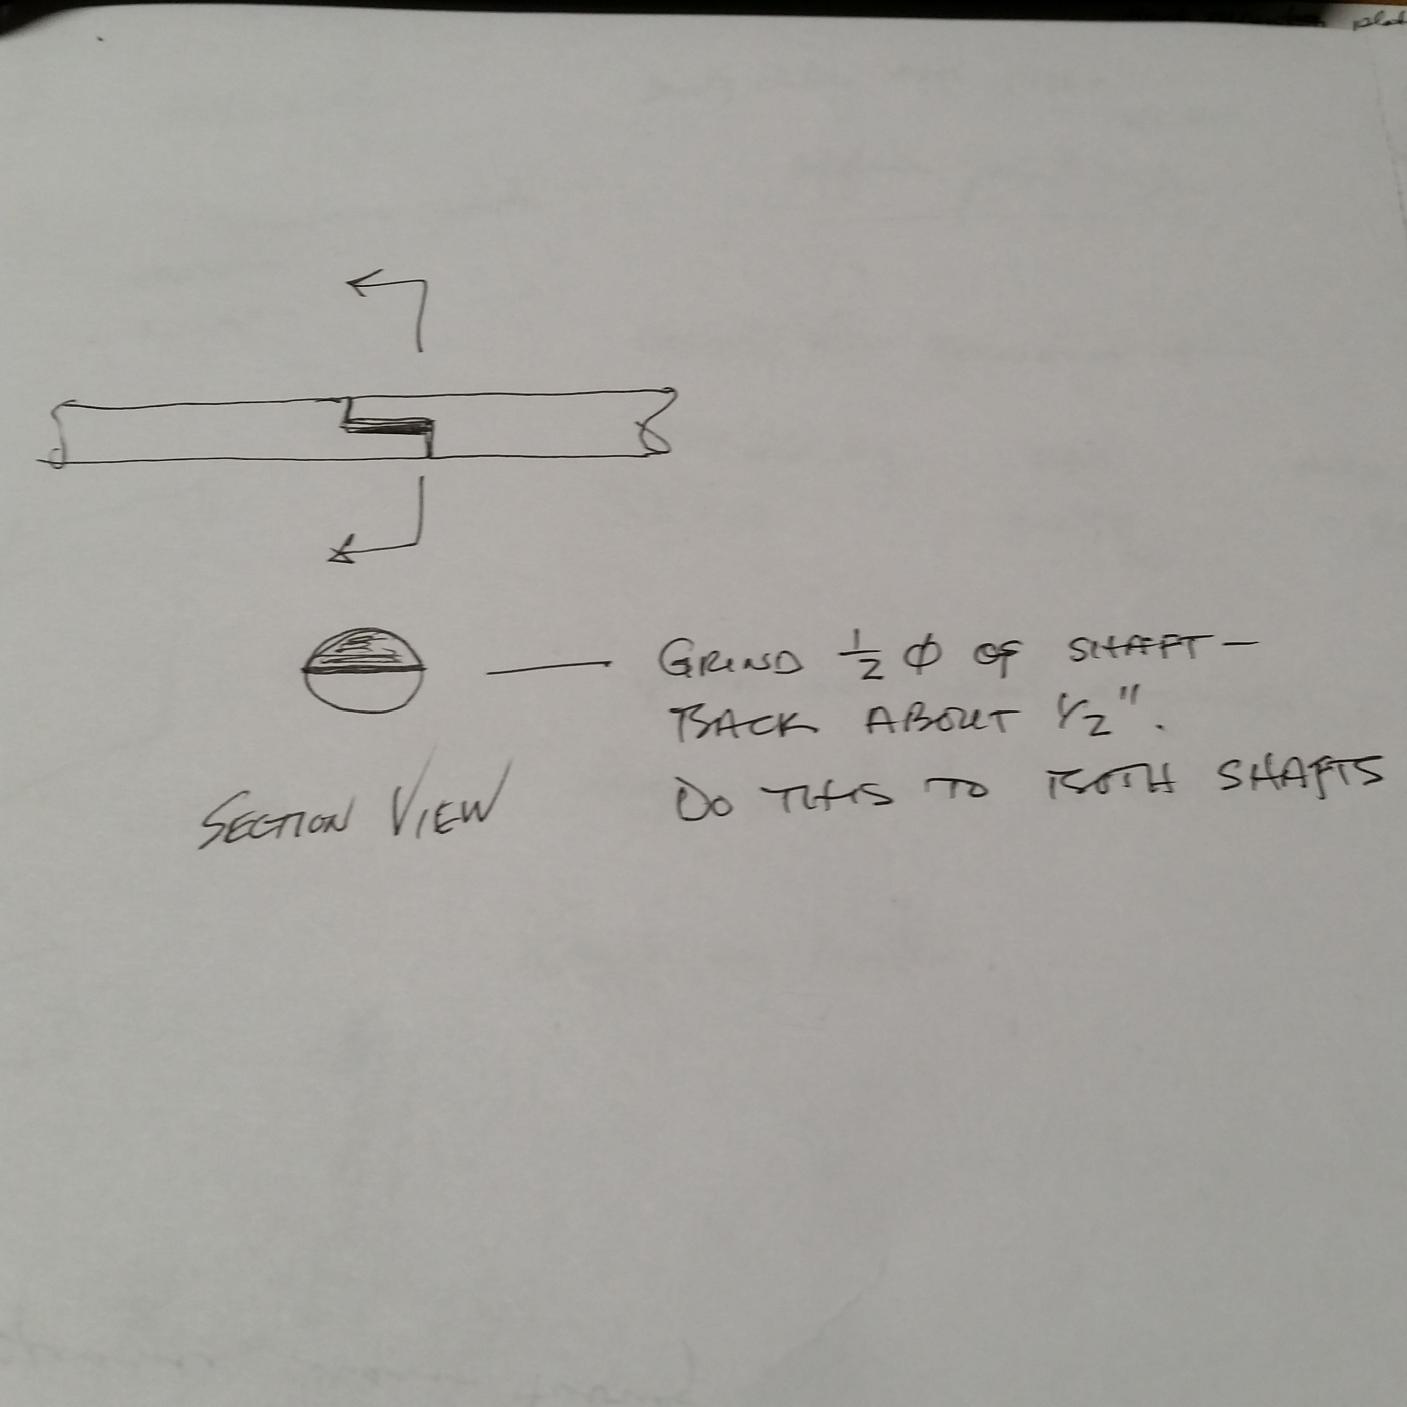 GRIND 1/2 φ OF SHAFT -
BACK ABOUT 1/2".
DO THIS TO BOTH SHAFTS
SECTION VIEW